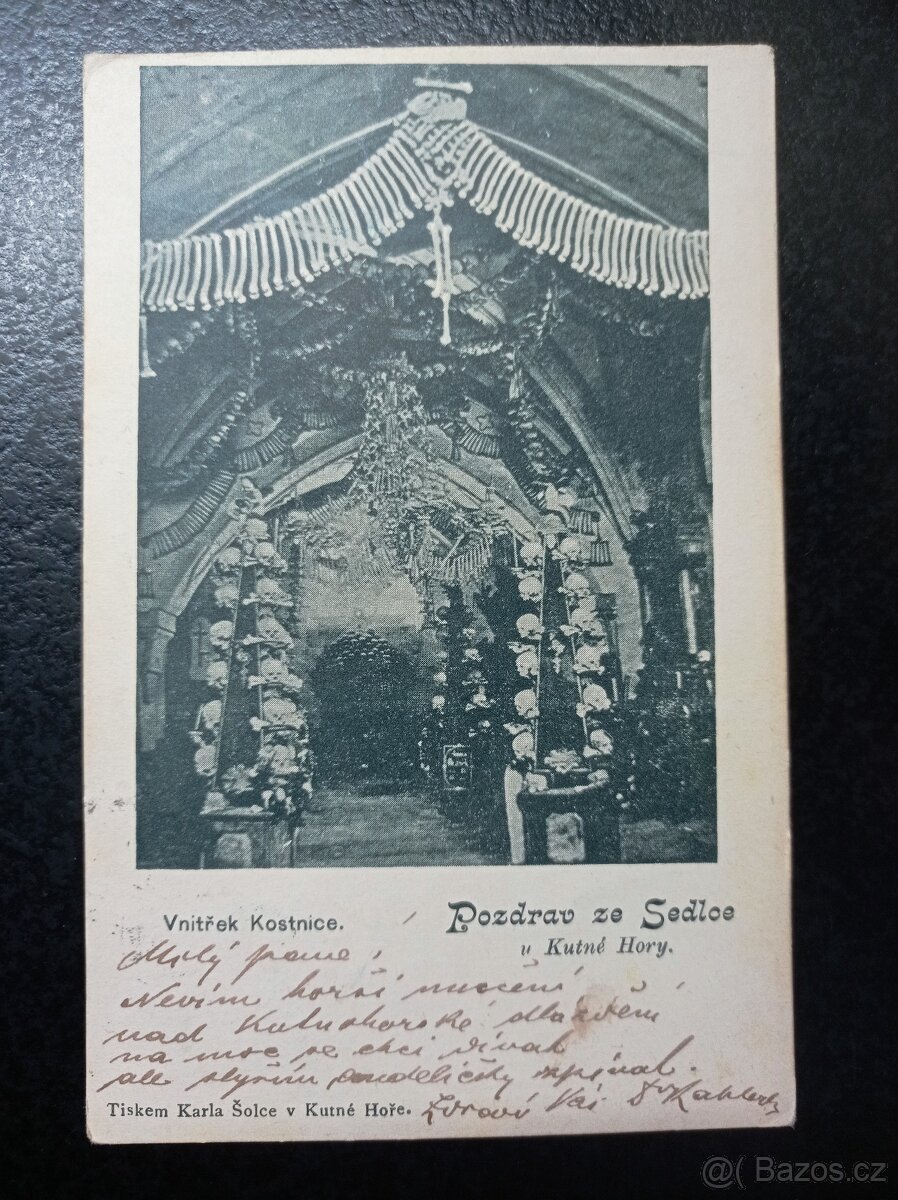 Vnitřek Kostnice.
Pozdrav ze Sedlce
u Kutné Hory.
Milý pane,
Nevím horší mučení
nad Kutnohorské dláždění
na moc se chci dívat
ale slyším andělíčky zpívat.
Zdraví Váš Dr
Tiskem Karla Šolce v Kutné Hoře.
@( Bazos.cz